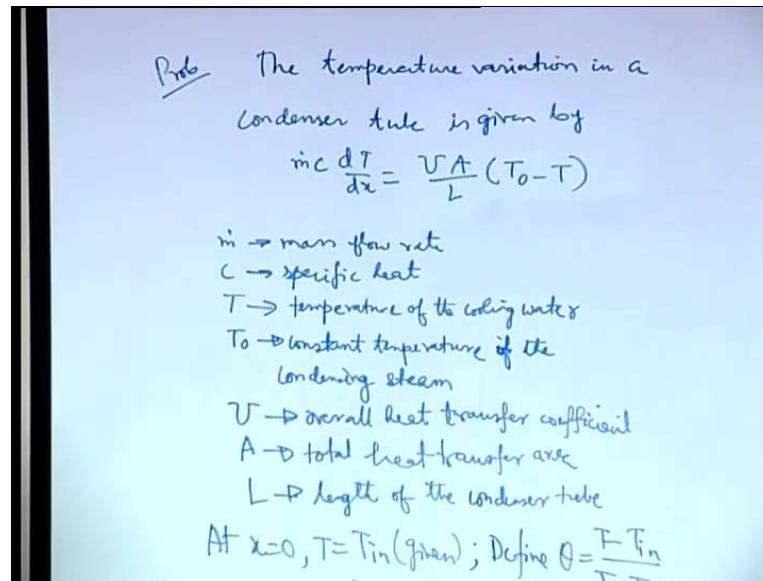 Prob The temperature variation in a
condenser tube is given by
ṁc dT/dx = UA/L (T₀-T)
ṁ → mass flow rate
C → specific heat
T → temperature of the cooling water
T₀ → constant temperature of the
condensing steam
U → overall heat transfer coefficient
A → total heat transfer area
L → length of the condenser tube
At x=0, T=Tin (given); Define θ = T-Tin